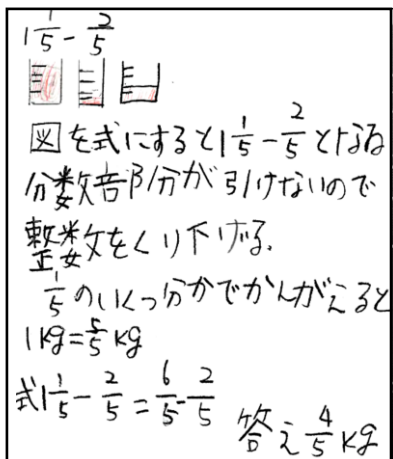 1 1/5 - 2/5
図を式にすると1 1/5 - 2/5となる
分数部分が引けないので
整数をくり下げる.
1/5のいくつ分かでかんがえると
1kg=5/5kg
式1 1/5 - 2/5 = 6/5 - 2/5
答え 4/5 kg